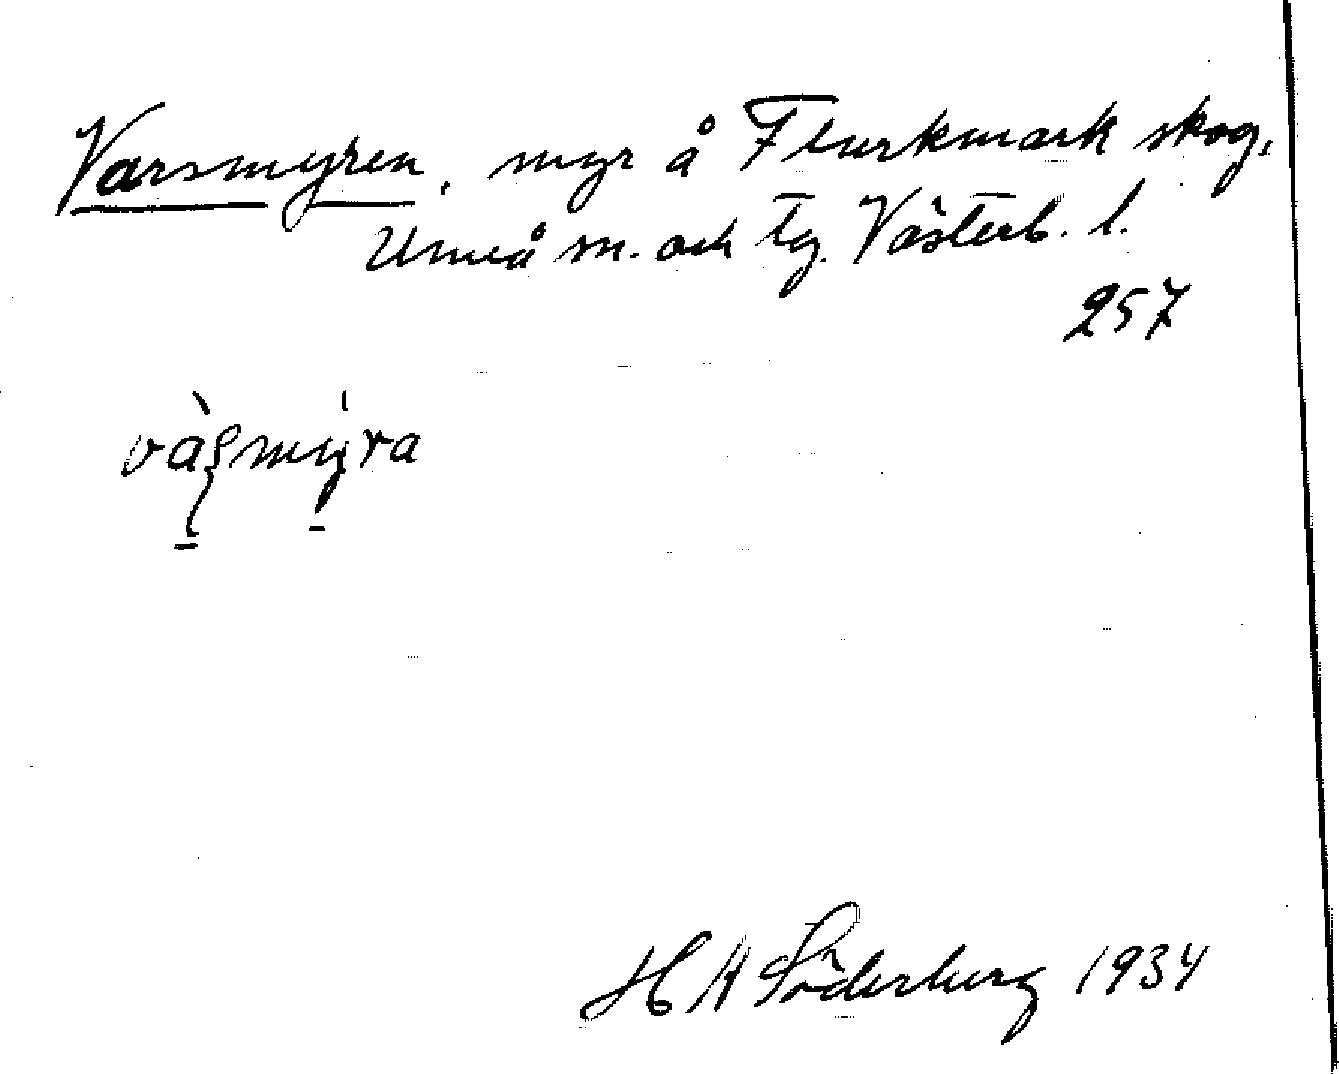 Varsmyren, myr å Flurkmark skog,
Umeå sn. och tg. Västerb. l.
257
H A Söderberg 1934